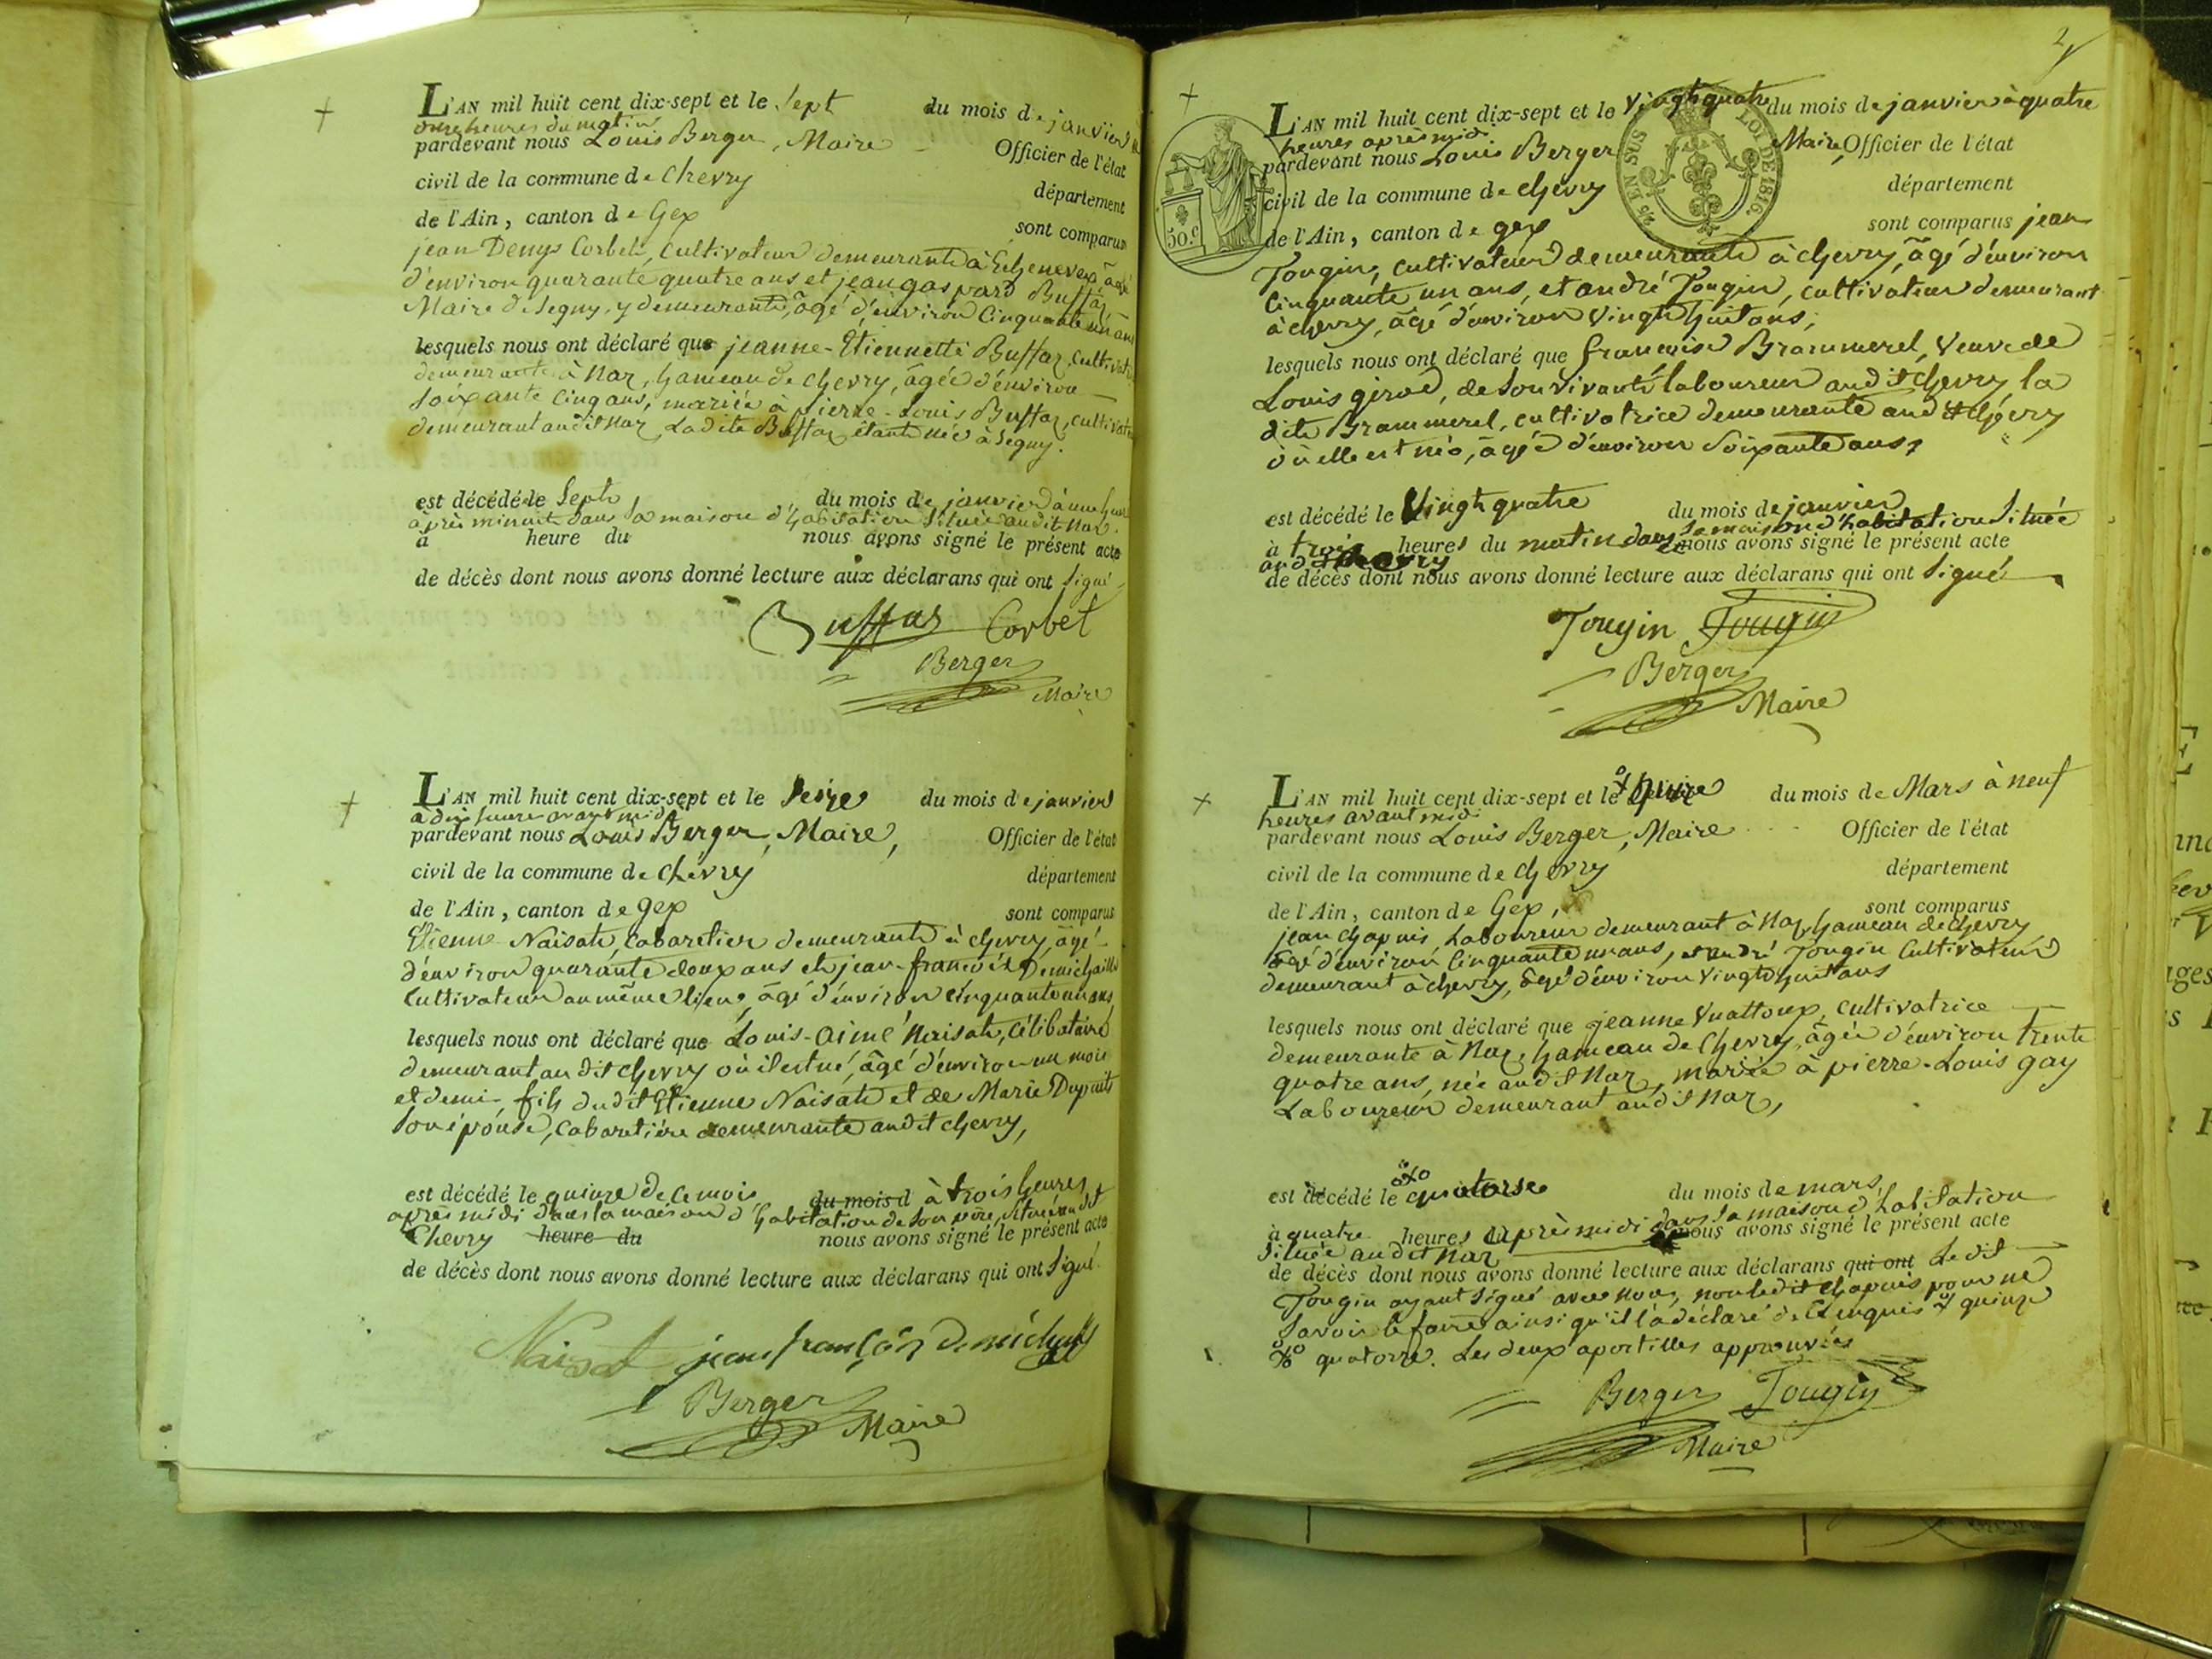 L'AN mil huit cent dix-sept et le sept du mois de janvier à
onze heures du matin
pardevant nous Louis Berger, Maire Officier de l'état
civil de la commune de Chevry département
de l'Ain, canton de Gex sont comparus
jean Denys Corbet, Cultivateur demeurant à Echenevex, âgé
d'environ quarante quatre ans et jean gaspard Buffaz,
Maire de Segny, y demeurant, âgé d'environ Cinquante un ans
lesquels nous ont déclaré que jeanne-Etiennette Buffaz, Cultivatrice
demeurante à Naz, hameau de Chevry, âgée d'environ
soixante cinq ans, mariée à pierre-Louis Buffaz, cultivateur
demeurant audit Naz, Ladite Buffaz étante née à Segny.
est décédé le Sept du mois de janvier à une heure
après minuit dans sa maison d'habitation située audit Naz.
à heure du nous avons signé le présent acte
de décès dont nous avons donné lecture aux déclarans qui ont signé
Buffaz Corbet
Berger
Maire
L'AN mil huit cent dix-sept et le Seize du mois de janvier
à dix heures avant midi
pardevant nous Louis Berger, Maire, Officier de l'état
civil de la commune de Chevry département
de l'Ain, canton de gex sont comparus
Etienne Naisat, Cabaretier demeurant à chevry, âgé
d'environ quarante deux ans et jean-françois Demichailli
Cultivateur au même lieu, âgé d'environ cinquante un ans
lesquels nous ont déclaré que Louis-Aimé Naisat, Célibataire
demeurant audit chevry où il est né, âgé d'environ un mois
et demi fils dudit Etienne Naisat et de Marie Dupuits
son épouse, Cabaretière demeurante audit chevry,
est décédé le quinze de ce mois du mois d à trois heures
après midi dans la maison d'habitation de son père, située audit
Chevry heure du nous avons signé le présent acte
de décès dont nous avons donné lecture aux déclarans qui ont signé
Naisat jean françois
Berger
Maire
2
L'AN mil huit cent dix-sept et le Vingt quatre du mois de janvier à quatre
heures après midi
pardevant nous Louis Berger Maire, Officier de l'état
civil de la commune de chevry département
de l'Ain, canton de gex sont comparus jean
50.c
25 EN SUS LOI DE 1816.
Tougin, Cultivateur demeurant à chevry, âgé d'environ
Cinquante un ans, et andré Tougin, cultivateur demeurant
à chevry, âgé d'environ Vingt huit ans,
lesquels nous ont déclaré que françoise Brammerel, Veuve de
Louis girod, de son vivant laboureur audit chevry la
dite Brammerel, cultivatrice demeurante audit chevry
où elle est née, âgée d'environ Soixante ans,
est décédé le Vingt quatre du mois de janvier
à trois heures du matin dans sa maison d'habitation Située
audit chevry nous avons signé le présent acte
de décès dont nous avons donné lecture aux déclarans qui ont signé
Tougin Tougin
Berger
Maire
L'AN mil huit cent dix-sept et le quinze du mois de Mars à neuf
heures avant midi
pardevant nous Louis Berger, Maire Officier de l'état
civil de la commune de chevry département
de l'Ain, canton de Gex, sont comparus
jean chapuis, Laboureur demeurant à Naz, hameau de chevry
âgé d'environ Cinquante un ans, et andré Tougin Cultivateur
demeurant à chevry, âgé d'environ Vingt huit ans
lesquels nous ont déclaré que jeanne Vuattoux, cultivatrice
demeurante à Naz, hameau de Chevry, âgée d'environ trente
quatre ans, née audit Naz, mariée à pierre-Louis gay
Laboureur demeurant audit Naz,
est décédé le quatorse du mois de mars
à quatre heures après midi dans sa maison d'habitation
située audit Naz nous avons signé le présent acte
de décès dont nous avons donné lecture aux déclarans qui ont Ledit
Tougin ayant signé avec nous, non ledit Chapuis pour ne
savoir le faire ainsi qu'il l'a déclaré de ce enquis quinze
quatorze. Les deux apostilles approuvées
Berger Tougin
Maire